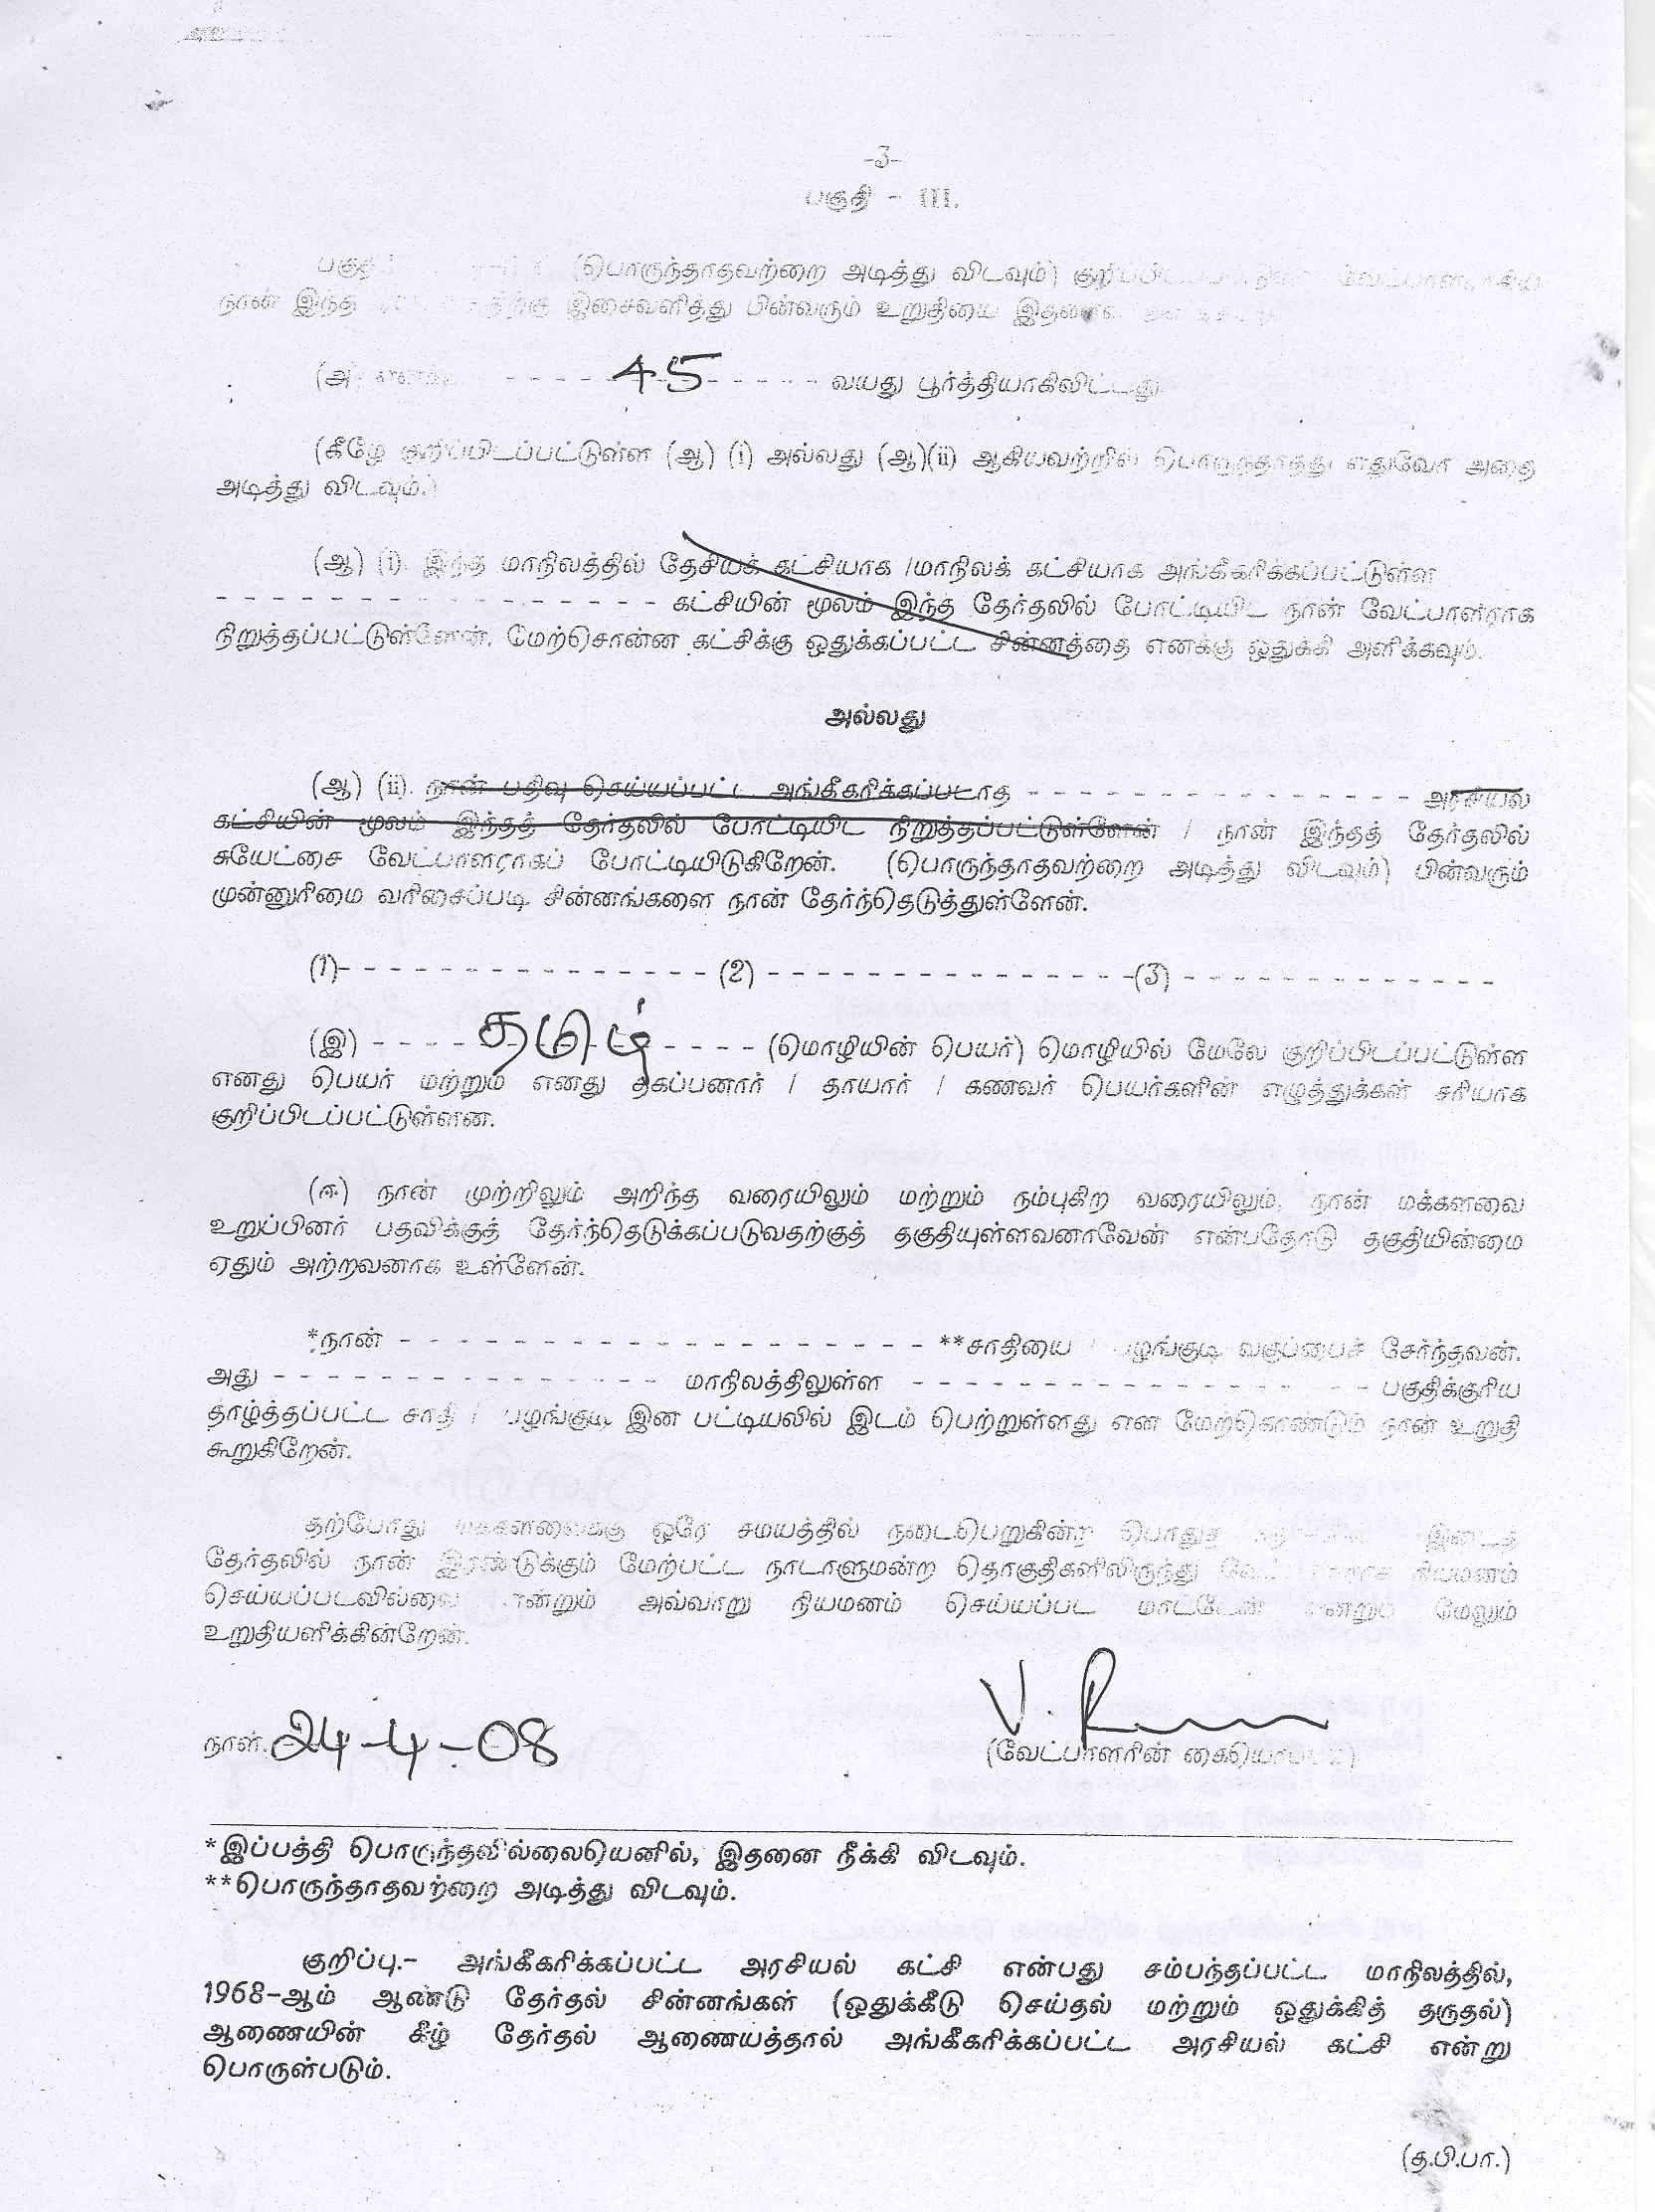 -3-
பகுதி - III.
(பொருந்தாதவற்றை அடித்து விடவும்)
நான் இந்த இசைவளித்து பின்வரும் உறுதியை
(அ) 45 வயது பூர்த்தியாகிவிட்டது.
(கீழே குறிப்பிடப்பட்டுள்ள (ஆ) (i) அல்லது (ஆ)(ii) ஆகியவற்றில் பொருந்தாதது எதுவோ அதை
அடித்து விடவும்.)
(ஆ) (i). இந்த மாநிலத்தில் தேசியக் கட்சியாக /மாநிலக் கட்சியாக அங்கீகரிக்கப்பட்டுள்ள
- - - - - - - - - - - - - - - - - கட்சியின் மூலம் இந்த தேர்தலில் போட்டியிட நான் வேட்பாளராக
நிறுத்தப்பட்டுள்ளேன். மேற்சொன்ன கட்சிக்கு ஒதுக்கப்பட்ட சின்னத்தை எனக்கு ஒதுக்கி அளிக்கவும்.
அல்லது
(ஆ) (ii). நான் பதிவு செய்யப்பட்ட அங்கீகரிக்கப்படாத - - - - - - - - - - - - - - - அரசியல்
கட்சியின் மூலம் இந்தத் தேர்தலில் போட்டியிட நிறுத்தப்பட்டுள்ளேன் / நான் இந்தத் தேர்தலில்
சுயேட்சை வேட்பாளராகப் போட்டியிடுகிறேன். (பொருந்தாதவற்றை அடித்து விடவும்) பின்வரும்
முன்னுரிமை வரிசைப்படி சின்னங்களை நான் தேர்ந்தெடுத்துள்ளேன்.
(1)- - - - - - - - - - - - - - - (2) - - - - - - - - - - - - - - -(3) - - - - - - - - - - - - -
(இ) - - - - தமிழ் - - - - (மொழியின் பெயர்) மொழியில் மேலே குறிப்பிடப்பட்டுள்ள
எனது பெயர் மற்றும் எனது தகப்பனார் / தாயார் / கணவர் பெயர்களின் எழுத்துக்கள் சரியாக
குறிப்பிடப்பட்டுள்ளன.
(ஈ) நான் முற்றிலும் அறிந்த வரையிலும் மற்றும் நம்புகிற வரையிலும், நான் மக்களவை
உறுப்பினர் பதவிக்குத் தேர்ந்தெடுக்கப்படுவதற்குத் தகுதியுள்ளவனாவேன் என்பதோடு தகுதியின்மை
ஏதும் அற்றவனாக உள்ளேன்.
*நான் - - - - - - - - - - - - - - - - - - - - **சாதியை / பழங்குடி வகுப்பைச் சேர்ந்தவன்.
அது - - - - - - - - - - - - - - - மாநிலத்திலுள்ள - - - - - - - - - - - - - - - - - - பகுதிக்குரிய
தாழ்த்தப்பட்ட சாதி / பழங்குடி இன பட்டியலில் இடம் பெற்றுள்ளது என மேற்கொண்டும் நான் உறுதி
கூறுகிறேன்.
தற்போது மக்களவைக்கு ஒரே சமயத்தில் நடைபெறுகின்ற இடைத்
தேர்தலில் நான் இரண்டுக்கும் மேற்பட்ட நாடாளுமன்ற தொகுதிகளிலிருந்து நியமனம்
செய்யப்படவில்லை என்றும் அவ்வாறு நியமனம் செய்யப்பட மாட்டேன் என்றும் மேலும்
உறுதியளிக்கின்றேன்.
நாள். 24-4-08 V. R
(வேட்பாளரின் கையொப்பம்)
*இப்பத்தி பொருந்தவில்லையெனில், இதனை நீக்கி விடவும்.
**பொருந்தாதவற்றை அடித்து விடவும்.
குறிப்பு.- அங்கீகரிக்கப்பட்ட அரசியல் கட்சி என்பது சம்பந்தப்பட்ட மாநிலத்தில்,
1968-ஆம் ஆண்டு தேர்தல் சின்னங்கள் (ஒதுக்கீடு செய்தல் மற்றும் ஒதுக்கித் தருதல்)
ஆணையின் கீழ் தேர்தல் ஆணையத்தால் அங்கீகரிக்கப்பட்ட அரசியல் கட்சி என்று
பொருள்படும்.
(த.பி.பா.)